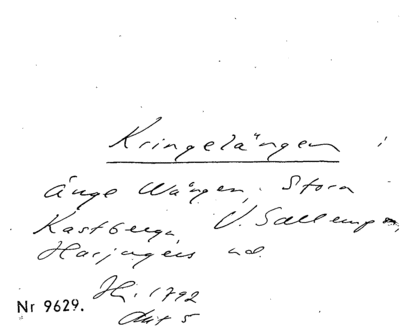 Kringelängen i
Änge Wången, Stora
Kastberga, V. Sallerup,
Harjagers hd.
Hr. 1792
Akt 5
Nr 9629.